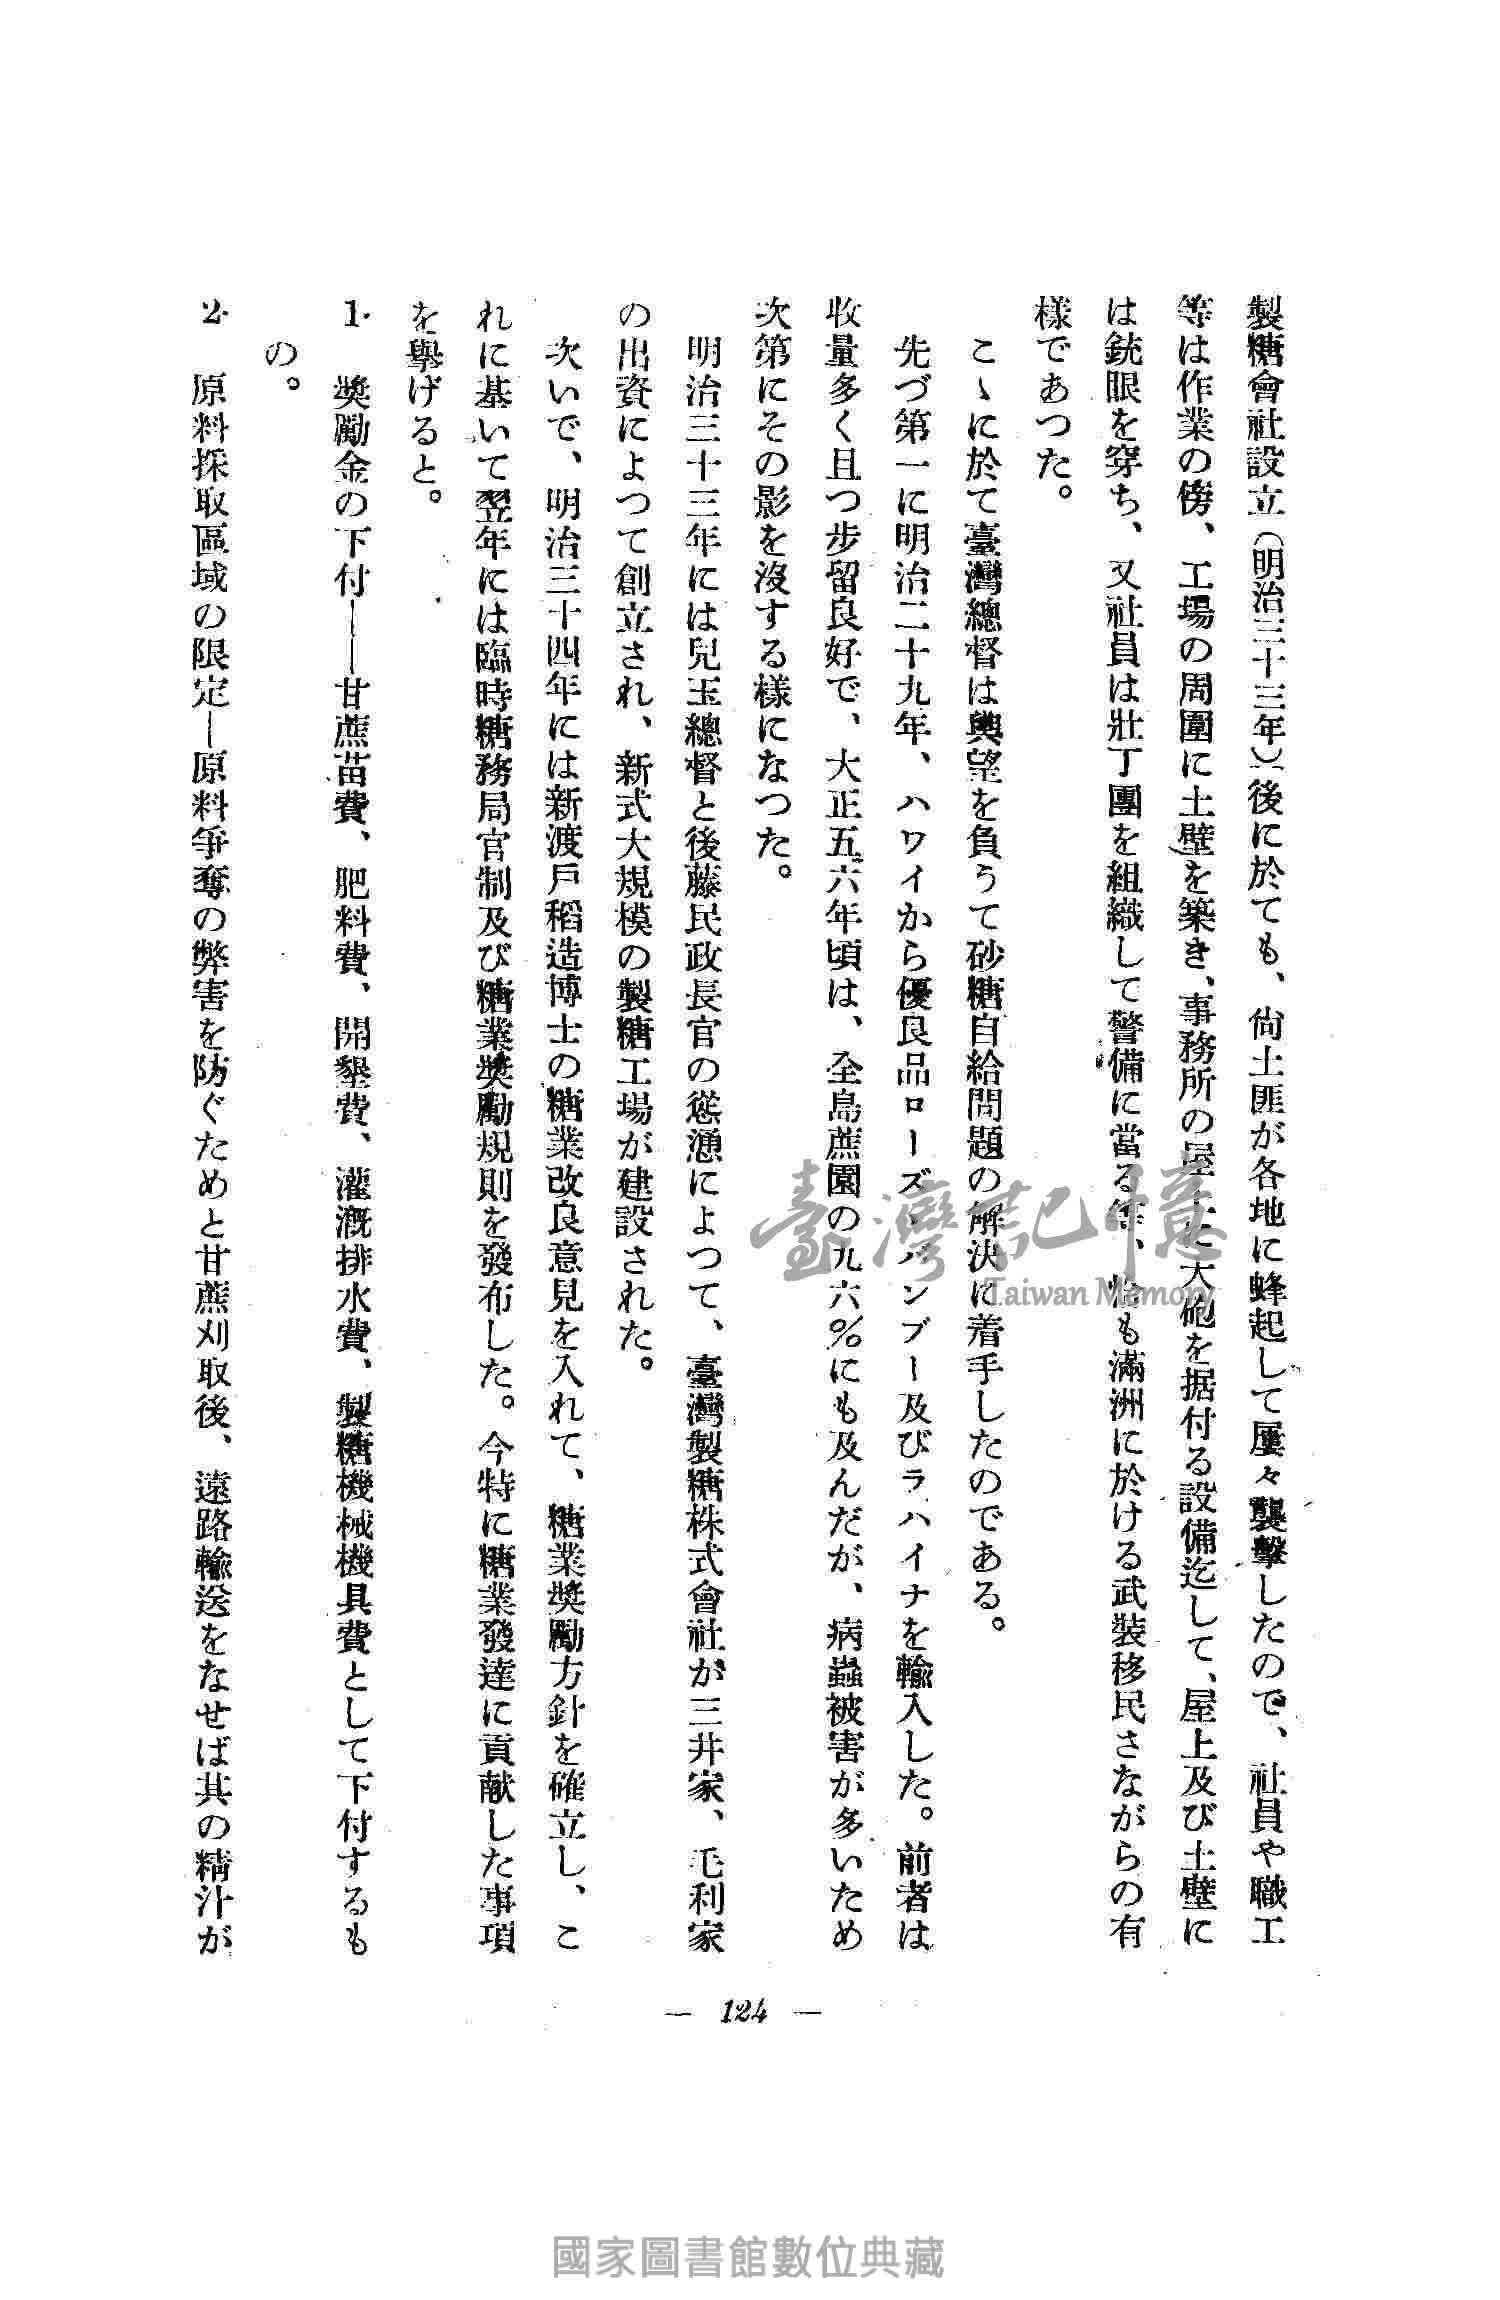 製糖會社設立(明治三十三年)後に於ても、尙土匪が各地に蜂起して屢々襲擊したので、社員や職工
等は作業の傍、工場の周圍に土壁を築き、事務所の屋上に大砲を据付る設備迄して、屋上及び土壁に
は銃眼を穿ち、又社員は壯丁團を組織して警備に當る等、恰も滿洲に於ける武裝移民さながらの有
樣であつた。
こゝに於て臺灣總督は輿望を負うて砂糖自給問題の解決に着手したのである。
先づ第一に明治二十九年、ハワイから優良品ローズバンブー及びラハイナを輸入した。前者は
收量多く且つ步留良好で、大正五六年頃は、全島蔗園の九六%にも及んだが、病蟲被害が多いため
次第にその影を沒する樣になつた。
明治三十三年には兒玉總督と後藤民政長官の慫慂によつて、臺灣製糖株式會社が三井家、毛利家
の出資によつて創立され、新式大規模の製糖工場が建設された。
次いで、明治三十四年には新渡戶稻造博士の糖業改良意見を入れて、糖業奬勵方針を確立し、こ
れに基いて翌年には臨時糖務局官制及び糖業奬勵規則を發布した。今特に糖業發達に貢献した事項
を擧げると。
1. 奬勵金の下付——甘蔗苗費、肥料費、開墾費、灌漑排水費、製糖機械機具費として下付するも
の。
2. 原料採取區域の限定—原料爭奪の弊害を防ぐためと甘蔗刈取後、遠路輸送をなせば其の精汁が
— 124 —
臺灣記憶
Taiwan Memory
國家圖書館數位典藏